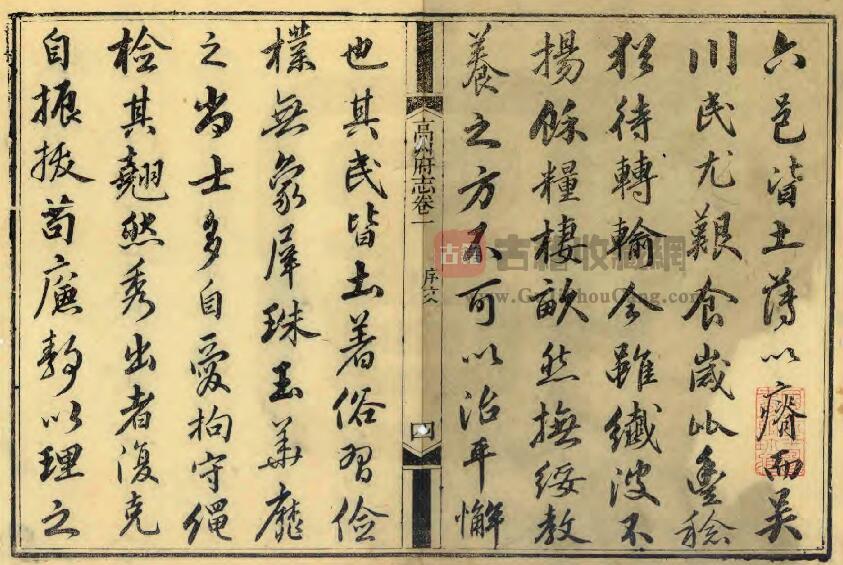 六邑皆土薄以瘠而吴
川民尤艱食歲比豊稔
猶待轉輸今雖纖波不
揚餘糧棲畝然撫綏教
養之方不可以治平懈
高州府志卷一
序六
四
也其民皆土著俗習儉
樸無象犀珠玉華靡
之尚士多自愛拘守繩
檢其翹然秀出者復克
自振拔苟廉靜以理之
古籍收藏網